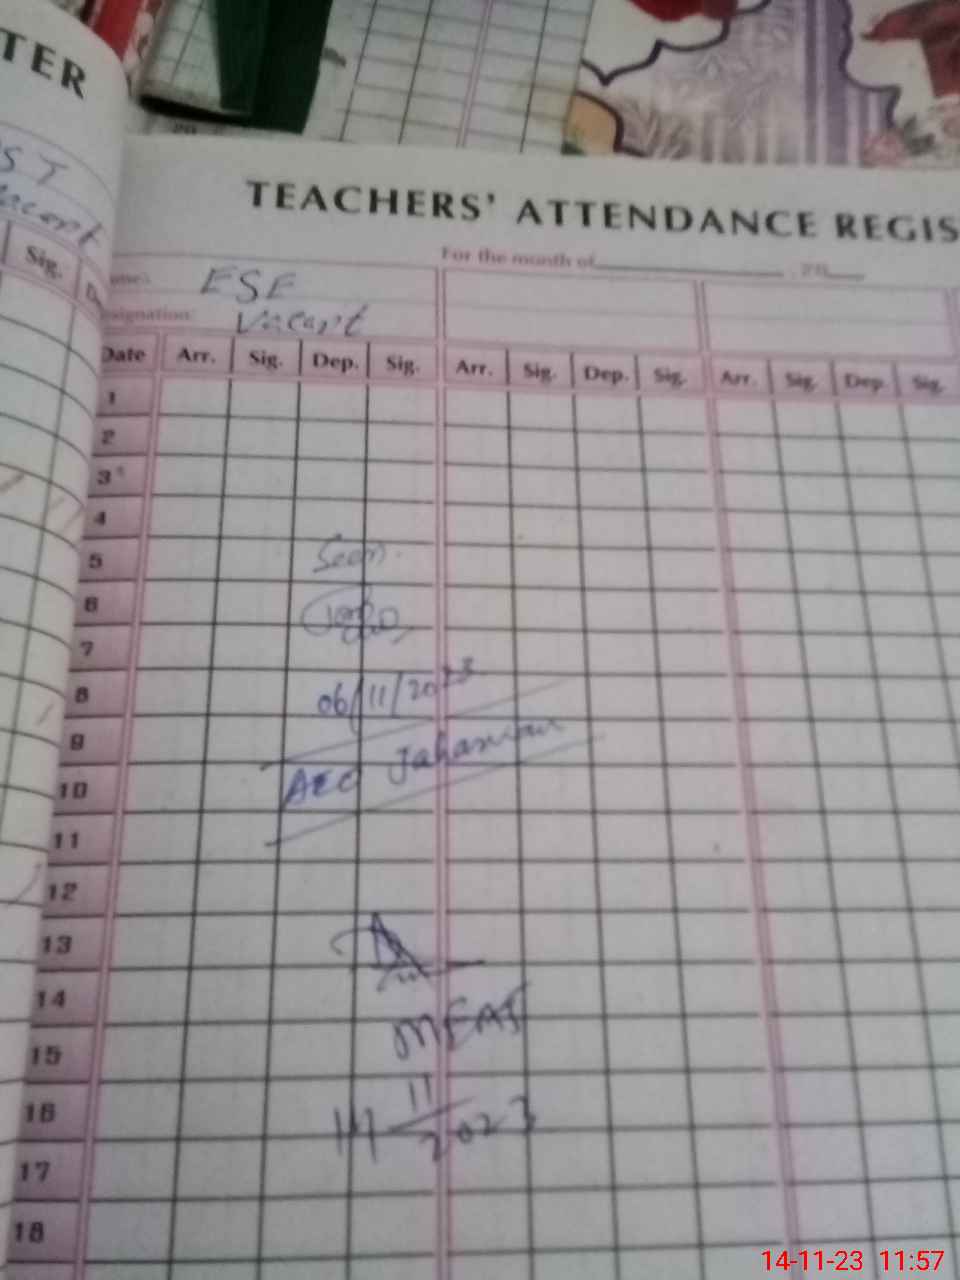 TER
ST
Vacant
Sig.
TEACHERS' ATTENDANCE REGIS
For the month of , 20
ESE
signation: Vacant
Date Arr. Sig. Dep. Sig. Arr. Sig. Dep. Sig. Arr. Sig. Dep. Sig.
1
2
3
4
5
Seen.
6
7
8
06/11/2023
9
AEO Jahanian
10
11
12
13
14
MEA
15
16
14 11 2023
17
18
14-11-23 11:57